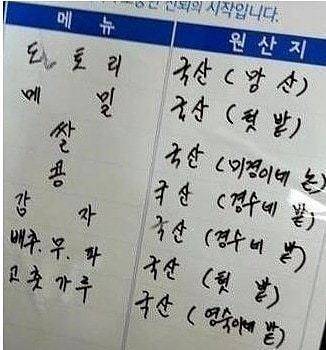 신뢰의 시작입니다.
메뉴 원산지
도토리 국산 ( 산)
메밀 국산 (텃 밭)
쌀 국산 (미경이네 논)
콩 국산 (경수네 밭)
감자 국산 (경수네 밭)
배추.무.파 국산 (텃 밭)
고춧가루 국산 (영숙이네 밭)